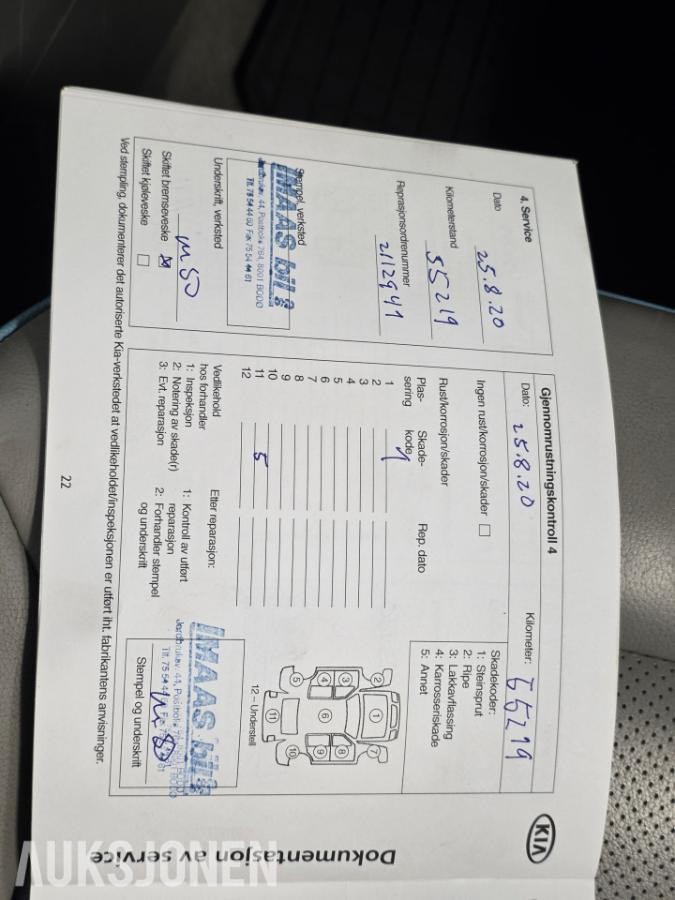 KIA
Dokumentasjon av service
4. Service
Dato 25.8.20
Kilometerstand 55219
Reprasjonsordrenummer 2112941
Stempel, verksted
IMAAS bil
Jordbruksv. 44, Postboks 784, 8001 BODØ
Tlf. 75 54 44 60 Fax 75 54 44 61
Underskrift, verksted
Skiftet bremseveske ☒
Skiftet kjøleveske ☐
Gjennomrustningskontroll 4
Dato: 25.8.20 Kilometer: 55219
Ingen rust/korrosjon/skader ☐
Rust/korrosjon/skader
Skadekoder:
1: Steinsprut
2: Ripe
3: Lakkavflassing
4: Karrosseriskade
5: Annet
Plas-sering Skade-kode Rep. dato
1 1
2
3
4
5
6
7
8
9
10
11 5
12
1 2 3 4 5 6 7 8 9 10 11
12 – Understell
Vedlikehold
hos forhandler
1: Inspeksjon
2: Notering av skade(r)
3: Evt. reparasjon
Etter reparasjon:
1: Kontroll av utført
reparasjon
2: Forhandler stempel
og underskrift
IMAAS bil
Jordbruksv. 44, Postboks
Tlf. 75 54 44
Stempel og underskrift
Ved stempling, dokumenterer det autoriserte Kia-verkstedet at vedlikeholdet/inspeksjonen er utført iht. fabrikantens anvisninger.
22
AUKSJONEN